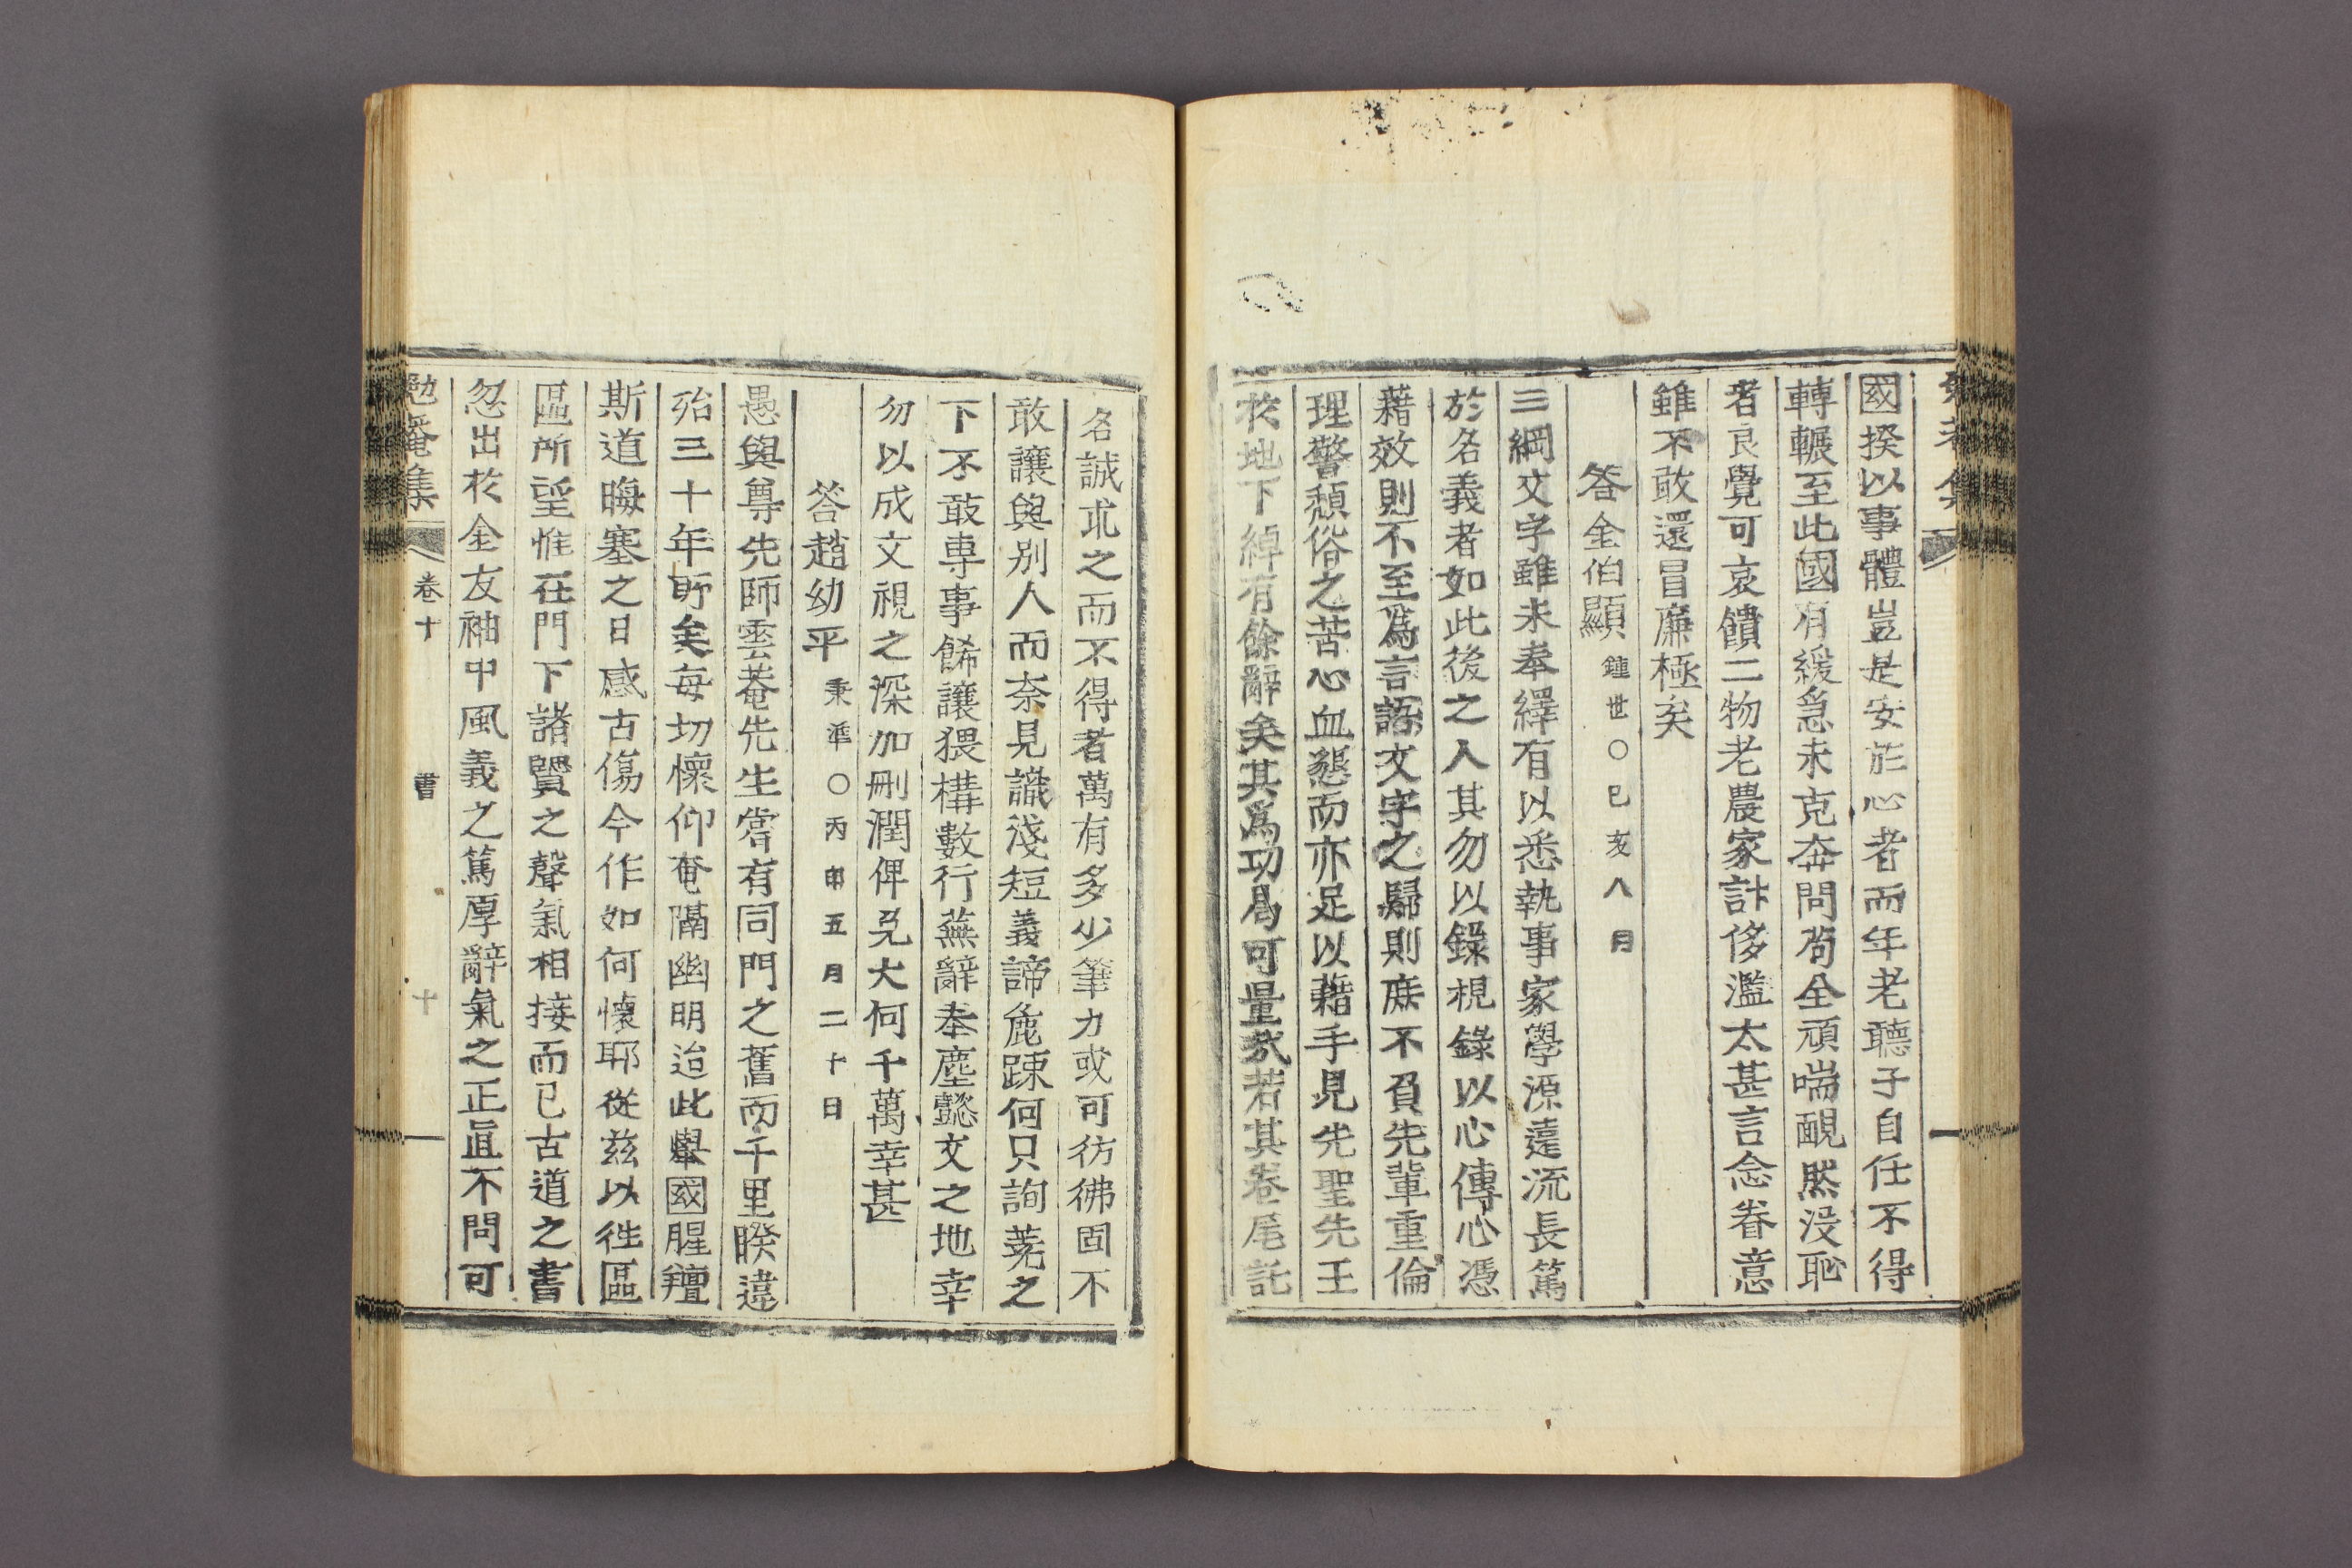 國揆以事體豈是安於心者而年老聽子自任不得
轉輾至此國有緩急未克奔問苟全頑喘靦然沒恥
者良覺可哀饋二物老農家計侈濫太甚言念眷意
雖不敢還冒廉極矣
答金伯顯 鍾世〇己亥八月
三綱文字雖未奉繹有以悉執事家學源遠流長篤
於名義者如此後之人其勿以錄視錄以心傳心憑
藉效則不至爲言語文字之歸則庶不負先輩重倫
理警頹俗之苦心血懇而亦足以藉手見先聖先王
於地下綽有餘辭矣其爲功曷可量哉若其卷尾託
名誠求之而不得者萬有多少筆力或可彷彿固不
敢讓與別人而奈見識淺短義諦麁踈何只詢蕘之
下不敢専事餙讓猥構數行蕪辭奉塵懿文之地幸
勿以成文視之深加刪潤俾免大何千萬幸甚
答趙幼平 秉準〇丙申五月二十日
愚與尊先師雲菴先生嘗有同門之舊而千里睽違
殆三十年所矣每切懷仰奄隔幽明迨此擧國腥羶
斯道晦塞之日感古傷今作如何懷耶從茲以徃區
區所望惟在門下諸賢之聲氣相接而已古道之書
忽出於金友袖中風義之篤厚辭氣之正直不問可
勉菴集 卷十 書 十